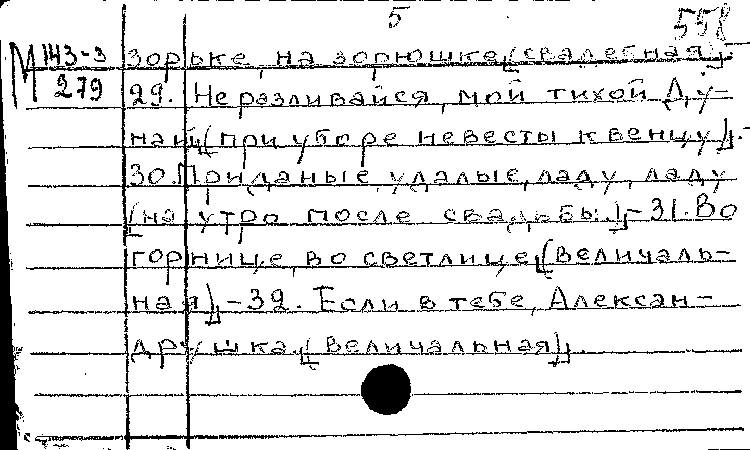 5
558
М 143-3
279
зорьке, на зорюшке (свадебная).
29. Не разливайся, мой тихой Ду-
най (при уборе невесты к венцу). -
30. Приданые, удалые, ладу, ладу
(на утро после свадьбы). - 31. Во
горнице, во светлице (величаль-
ная). - 32. Если в тебе, Алексан-
друшка (величальная).